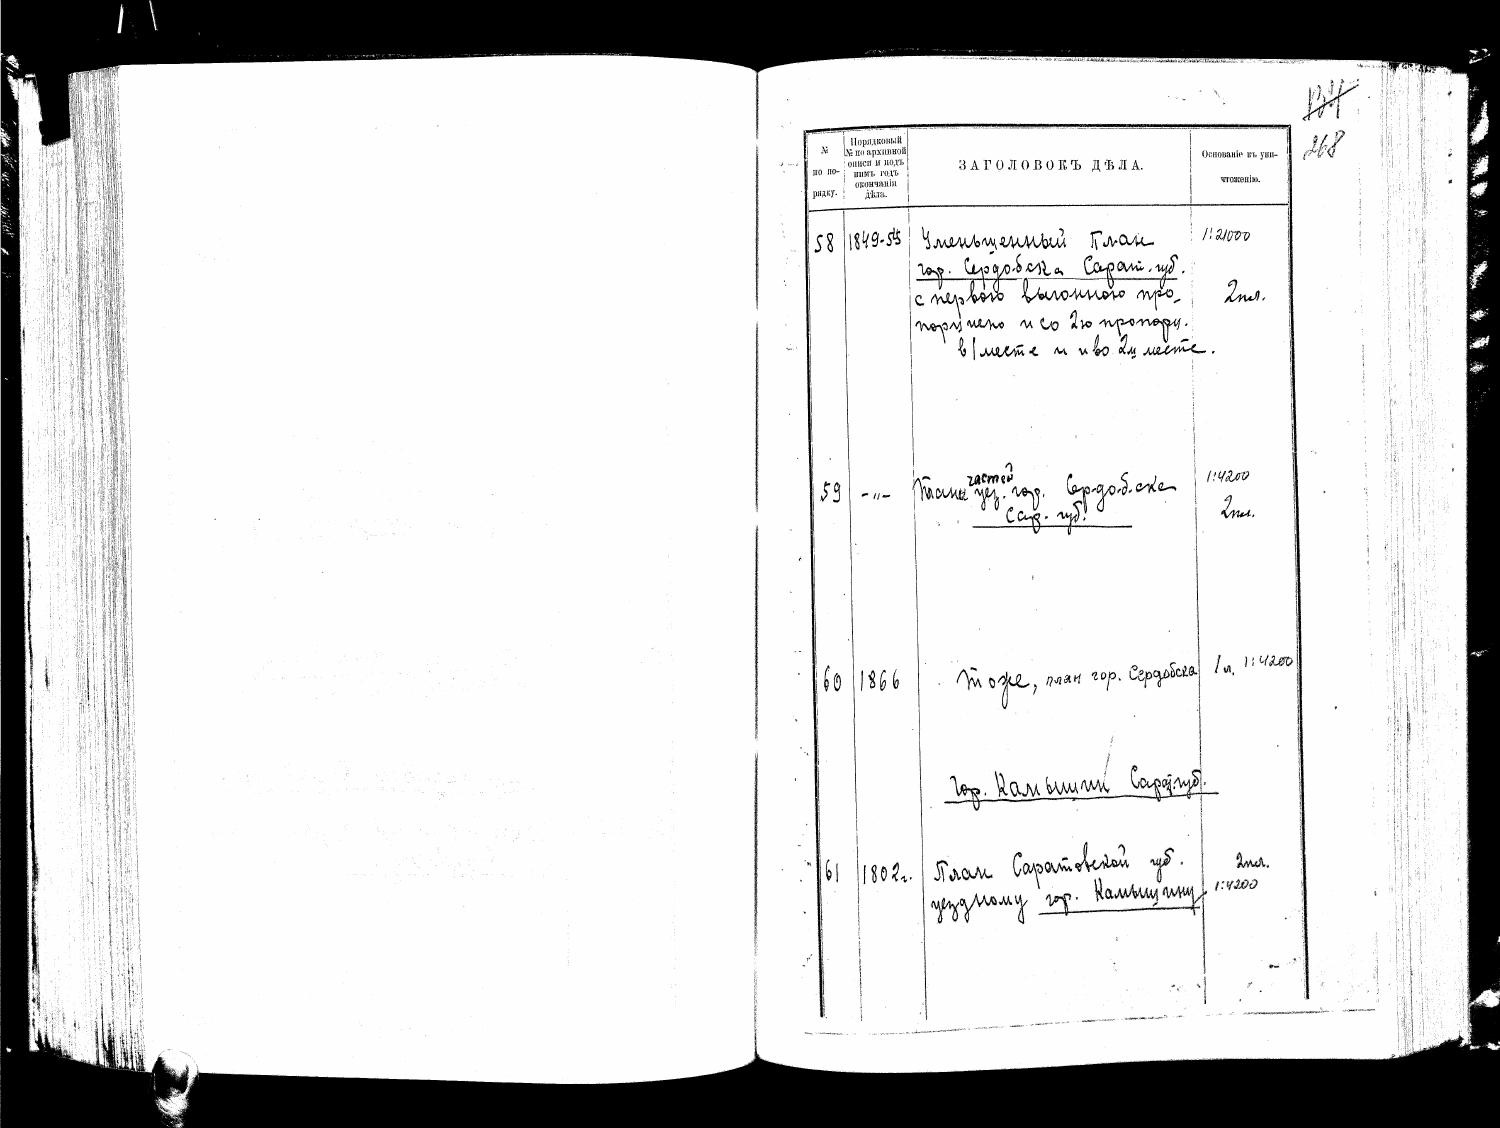 268
№ по порядку.
Порядковый № по архивной описи и подъ нимъ годъ окончанія дѣла.
ЗАГОЛОВОКЪ ДѢЛА.
Основаніе къ уничтоженію.
58 1849-55 Уменьщенный План 1:21000
гор. Сердобска Сарат. губ.
с первою выгонною про- 2пл.
порциею и со 2ю пропорц.
в 1 месте и и во 2м месте.
59 -"- Планы частей уез. гор. Сердобска 1:4200
Сар. губ. 2пл.
60 1866 Тоже, план гор. Сердобска 1 л. 1:4200
гор. Камышин Сарат. губ.
61 1802г. План Саратовской губ. 2пл.
уездному гор. Камышину 1:4200